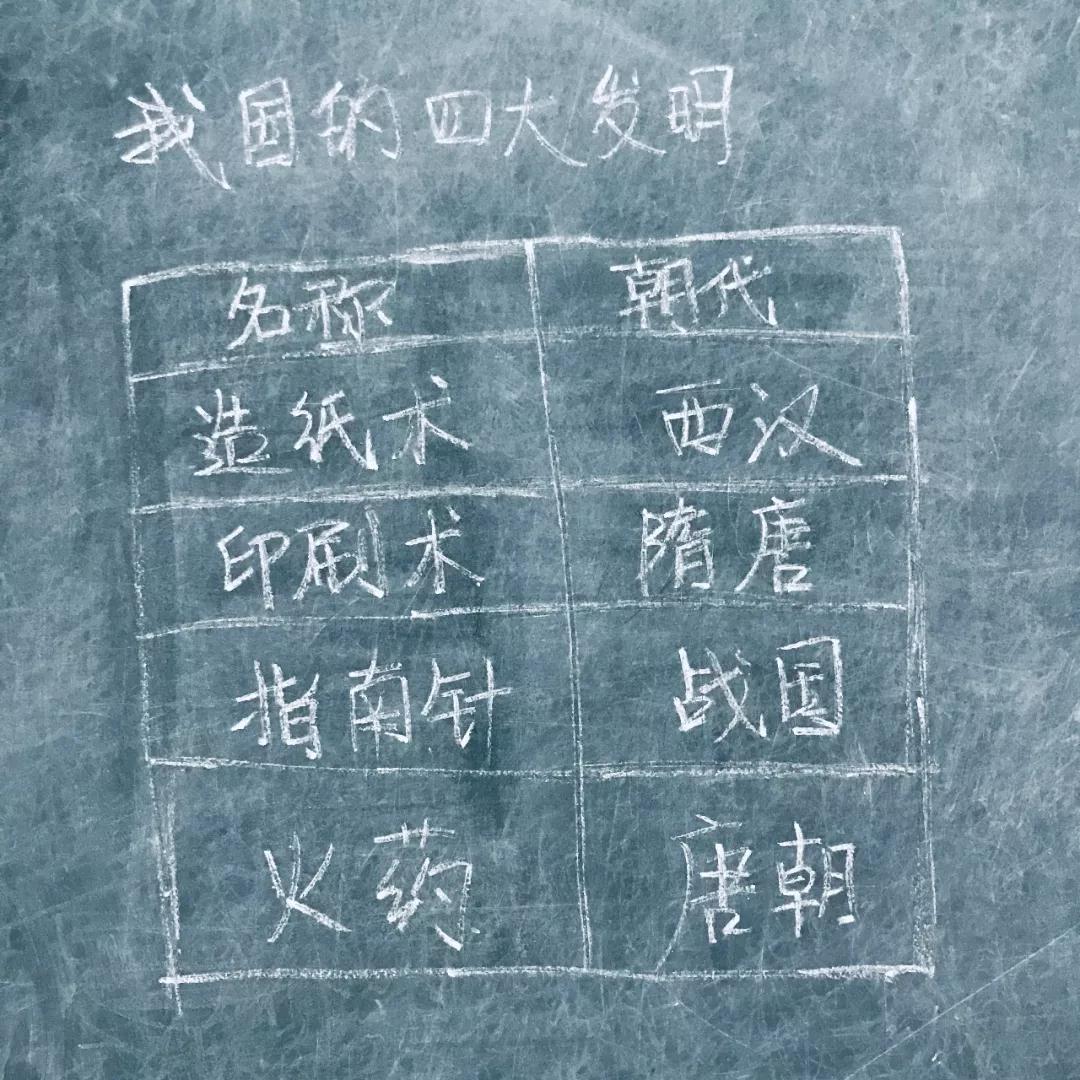 我国的四大发明
名称 朝代
造纸术 西汉
印刷术 隋唐
指南针 战国
火药 唐朝